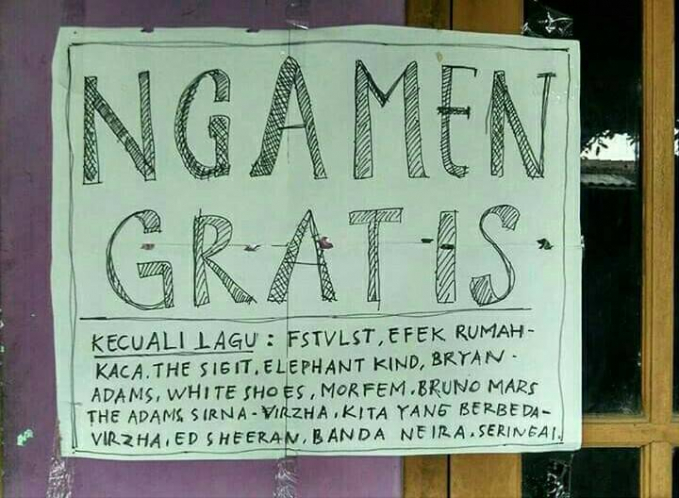 NGAMEN
GRATIS
KECUALI LAGU : FSTVLST, EFEK RUMAH-
KACA, THE SIGIT, ELEPHANT KIND, BRYAN -
ADAMS, WHITE SHOES, MORFEM, BRUNO MARS
THE ADAMS, SIRNA - VIRZHA, KITA YANG BERBEDA-
VIRZHA, ED SHEERAN, BANDA NEIRA, SERINGAI.